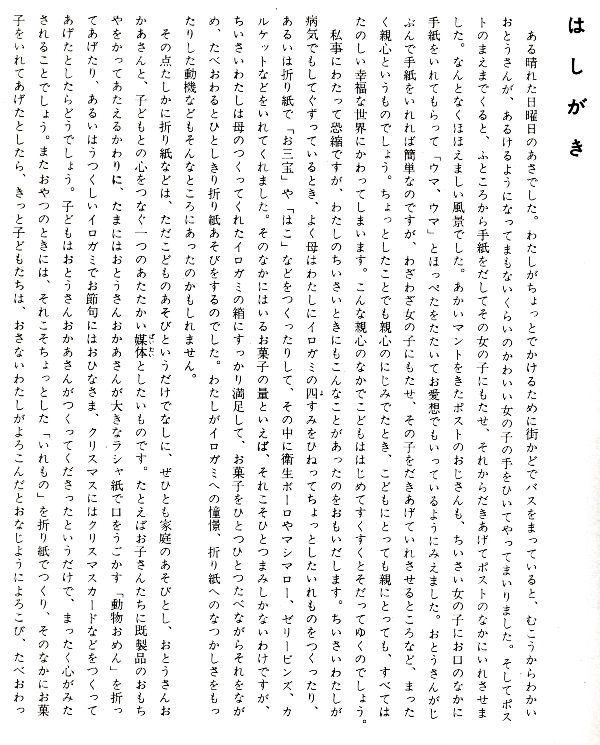 はしがき
ある晴れた日曜日のあさでした。わたしがちょっとでかけるために街かどでバスをまっていると、むこうからわかい
おとうさんが、あるけるようになってまもないくらいのかわいい女の子の手をひいてやってまいりました。そしてポス
トのまえまでくると、ふところから手紙をだしてその女の子にもたせ、それからだきあげてポストのなかにいれさせま
した。なんとなくほほえましい風景でした。あかいマントをきたポストのおじさんも、ちいさい女の子にお口のなかに
手紙をいれてもらって「ウマ、ウマ」とほっぺたをたたいてお愛想でもいっているようにみえました。おとうさんがじ
ぶんで手紙をいれれば簡単なのですが、わざわざ女の子にもたせ、その子をだきあげていれさせるところなど、まった
く親心というものでしょう。ちょっとしたことでも親心のにじみでたとき、こどもにとっても親にとっても、すべては
たのしい幸福な世界にかわってしまいます。こんな親心のなかでこどもははじめてすくすくとそだってゆくのでしょう。
私事にわたって恐縮ですが、わたしのちいさいときにもこんなことがあったのをおもいだします。ちいさいわたしが
病気でもしてぐずっているとき、よく母はわたしにイロガミの四すみをひねってちょっとしたいれものをつくったり、
あるいは折り紙で「お三宝」や「はこ」などをつくったりして、その中に衛生ボーロやマシマロー、ゼリービンズ、カ
ルケットなどをいれてくれました。そのなかにはいるお菓子の量といえば、それこそひとつまみしかないわけですが、
ちいさいわたしは母のつくってくれたイロガミの箱にすっかり満足して、お菓子をひとつひとつたべながらそれをなが
め、たべおわるとひとしきり折り紙あそびをするのでした。わたしがイロガミへの憧憬、折り紙へのなつかしさをもっ
たりした動機などもそんなところにあったのかもしれません。
その点たしかに折り紙などは、ただこどものあそびというだけでなしに、ぜひとも家庭のあそびとし、おとうさんお
かあさんと、子どもとの心をつなぐ一つのあたたかい媒体としたいものです。たとえばお子さんたちに既製品のおもち
ゃをかってあたえるかわりに、たまにはおとうさんおかあさんが大きなラシャ紙で口をうごかす「動物おめん」を折っ
てあげたり、あるいはうつくしいイロガミでお節句にはおひなさま、クリスマスにはクリスマスカードなどをつくって
あげたとしたらどうでしょう。子どもはおとうさんおかあさんがつくってくださったというだけで、まったく心がみた
されることでしょう。またおやつのときには、それこそちょっとした「いれもの」を折り紙でつくり、そのなかにお菓
子をいれてあげたとしたら、きっと子どもたちは、おさないわたしがよろこんだとおなじようによろこび、たべおわっ